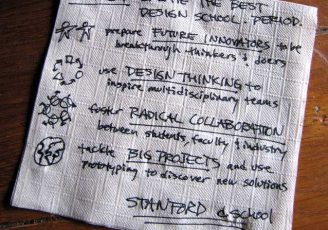 THE BEST
DESIGN SCHOOL. PERIOD.
prepare FUTURE INNOVATORS to be
breakthrough thinkers & doers
use DESIGN THINKING to
inspire multidisciplinary teams
foster RADICAL COLLABORATION
between students, faculty & industry
tackle BIG PROJECTS and use
prototyping to discover new solutions
STANFORD d.school